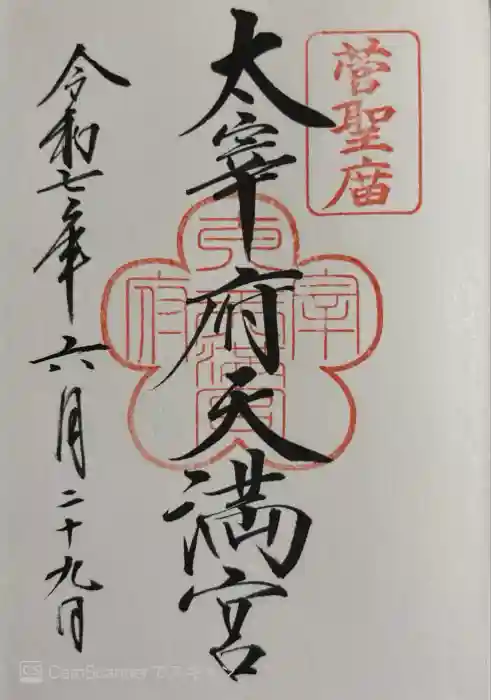 菅聖庿
太宰府天満宮
令和七年六月二十九日
CS CamScanner でスキャ